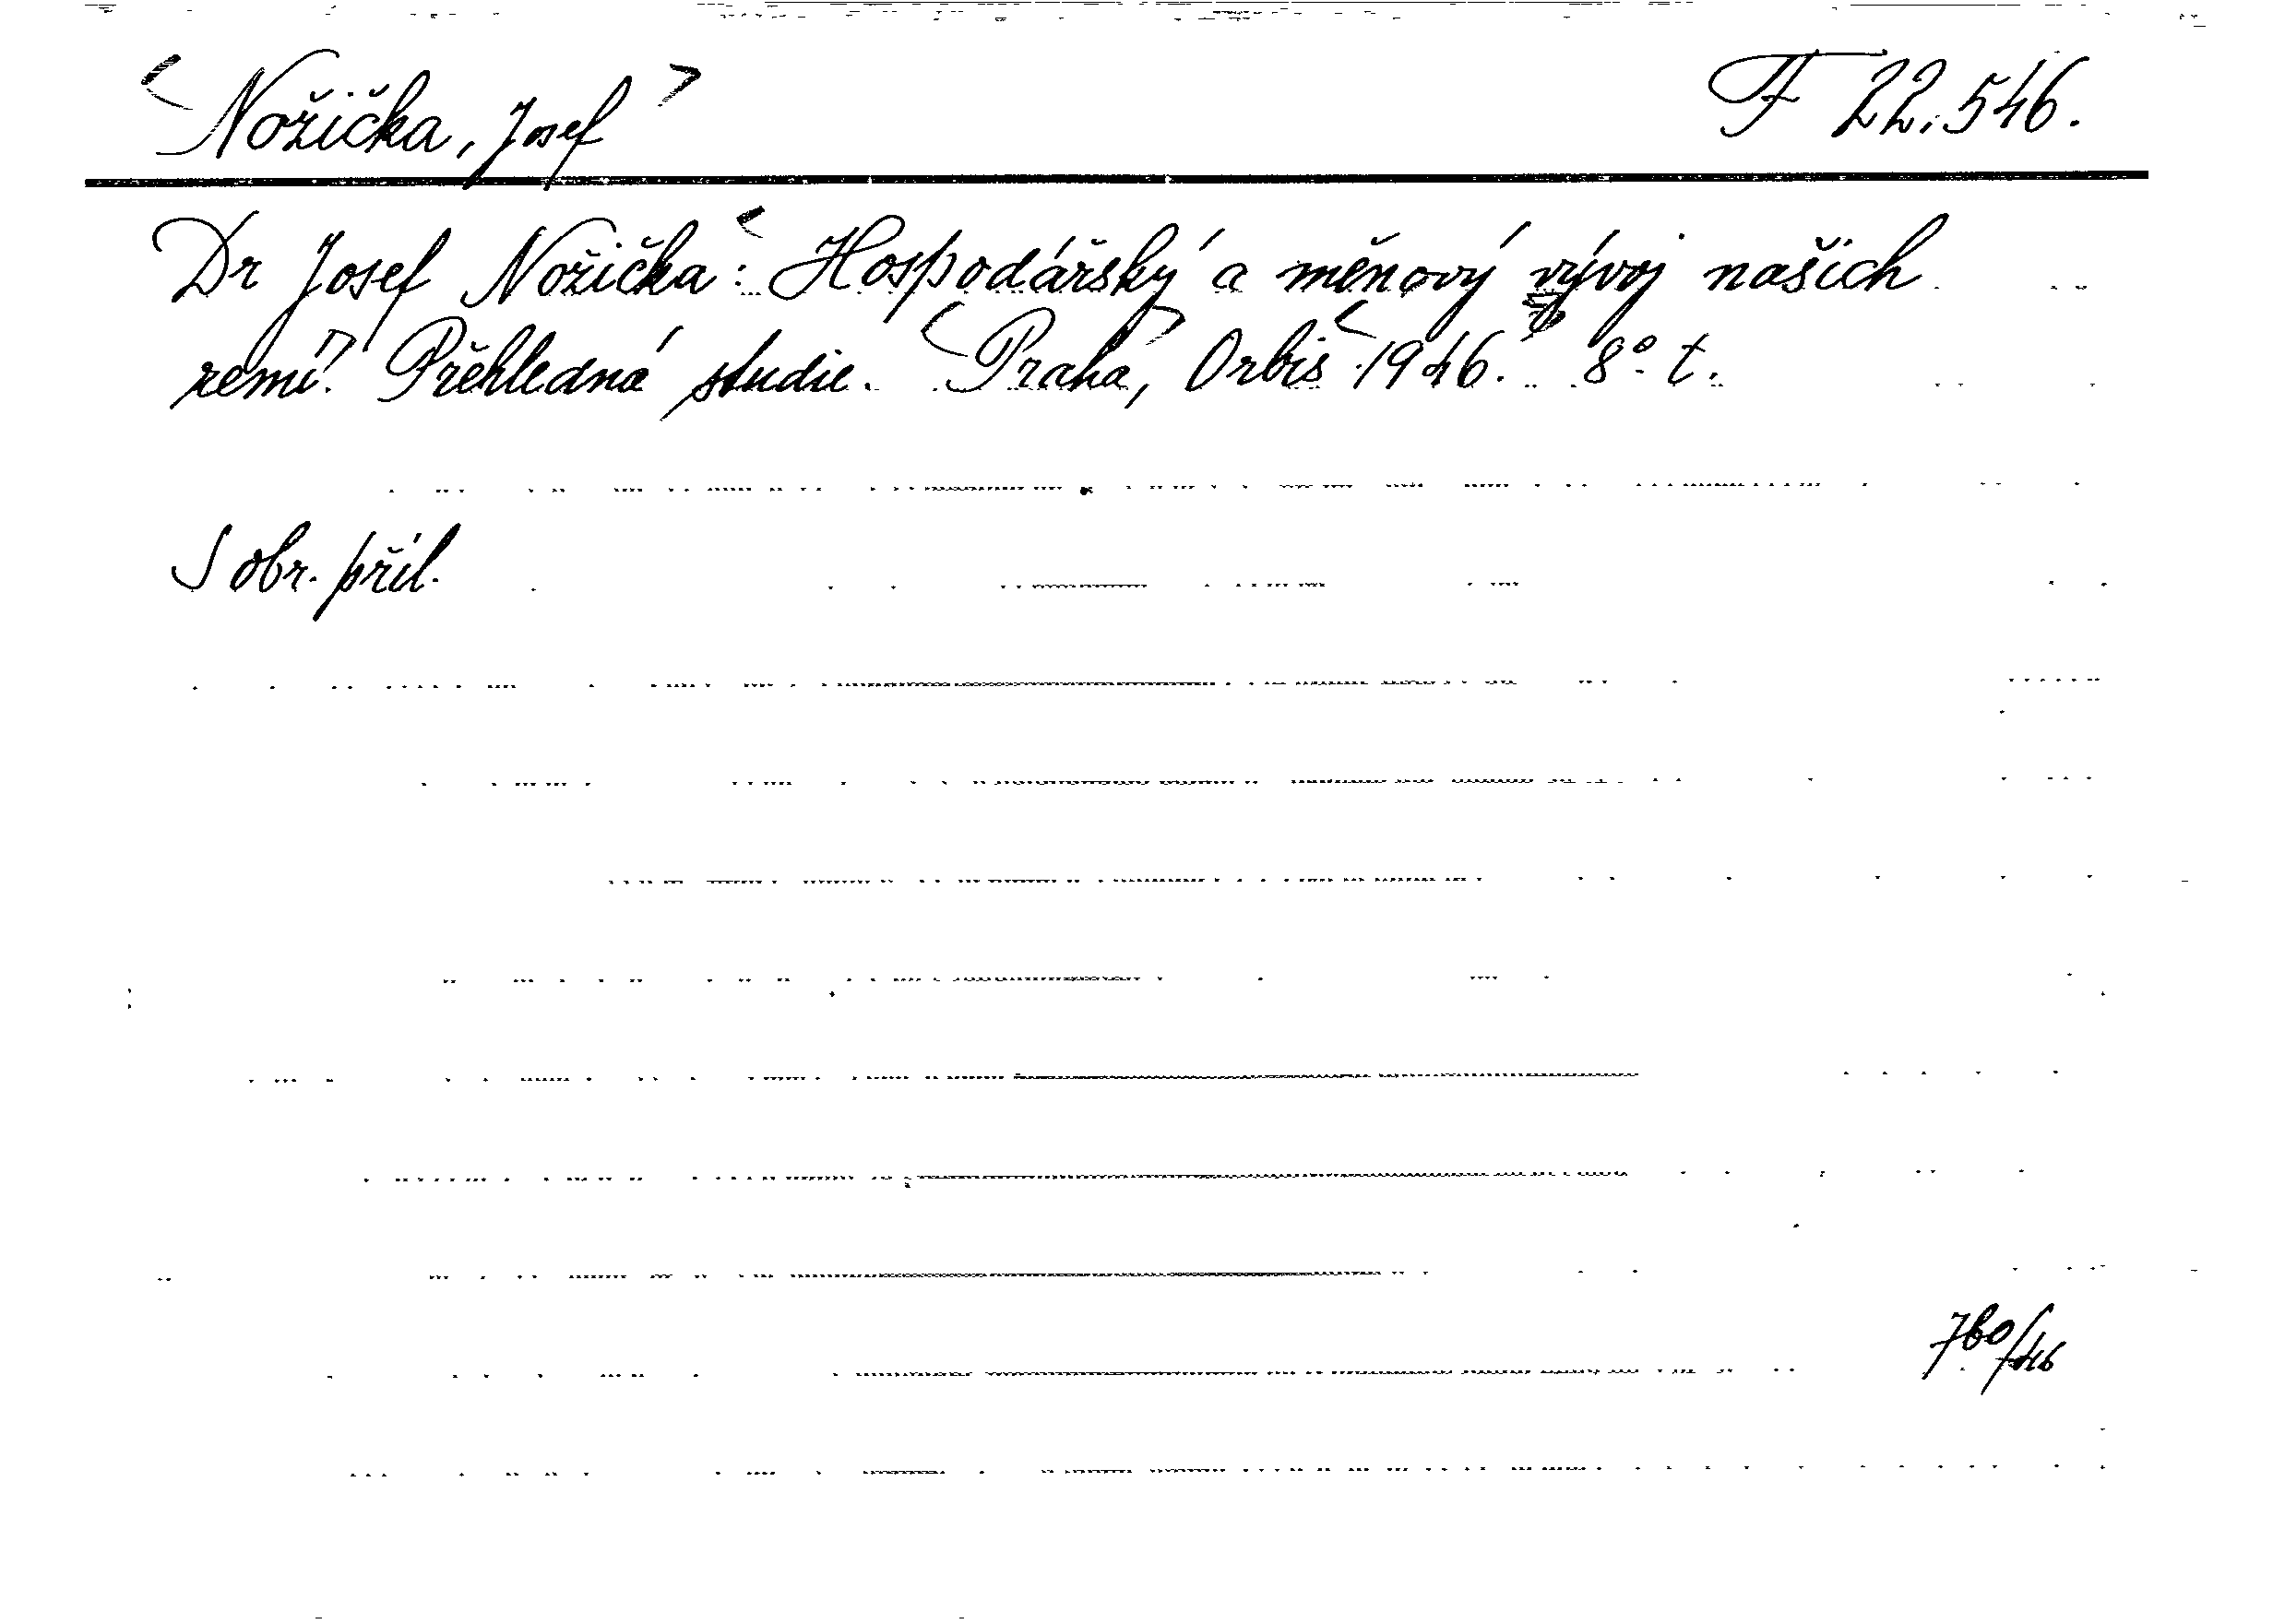 Nožička, Josef
F 22.546.
Dr Josef Nožička: Hospodářský a měnový vývoj našich
zemí. Přehledná studie. Praha, Orbis 1946. 8° t.
S obr. příl.
760/46